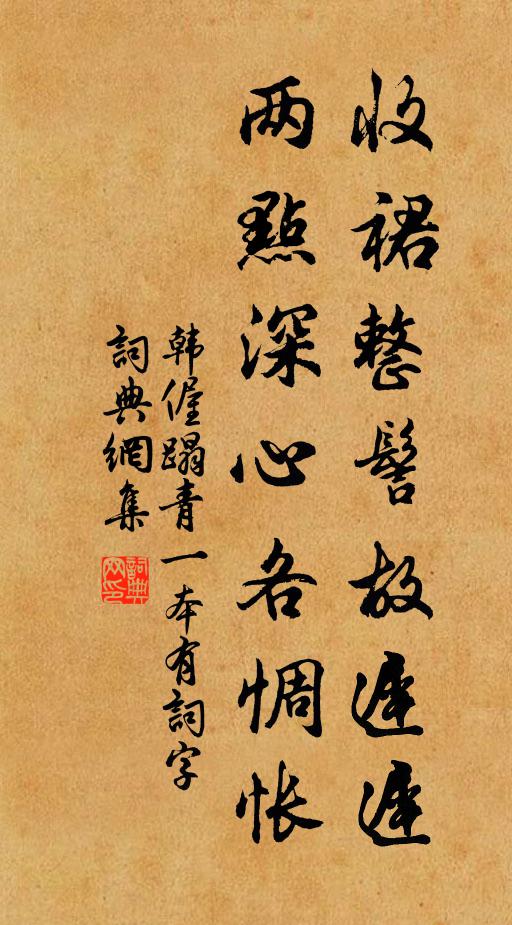 收裙整髻故遲遲
两點深心各惆怅
韩偓蹋青一本有詞字
詞典網集
詞典网印